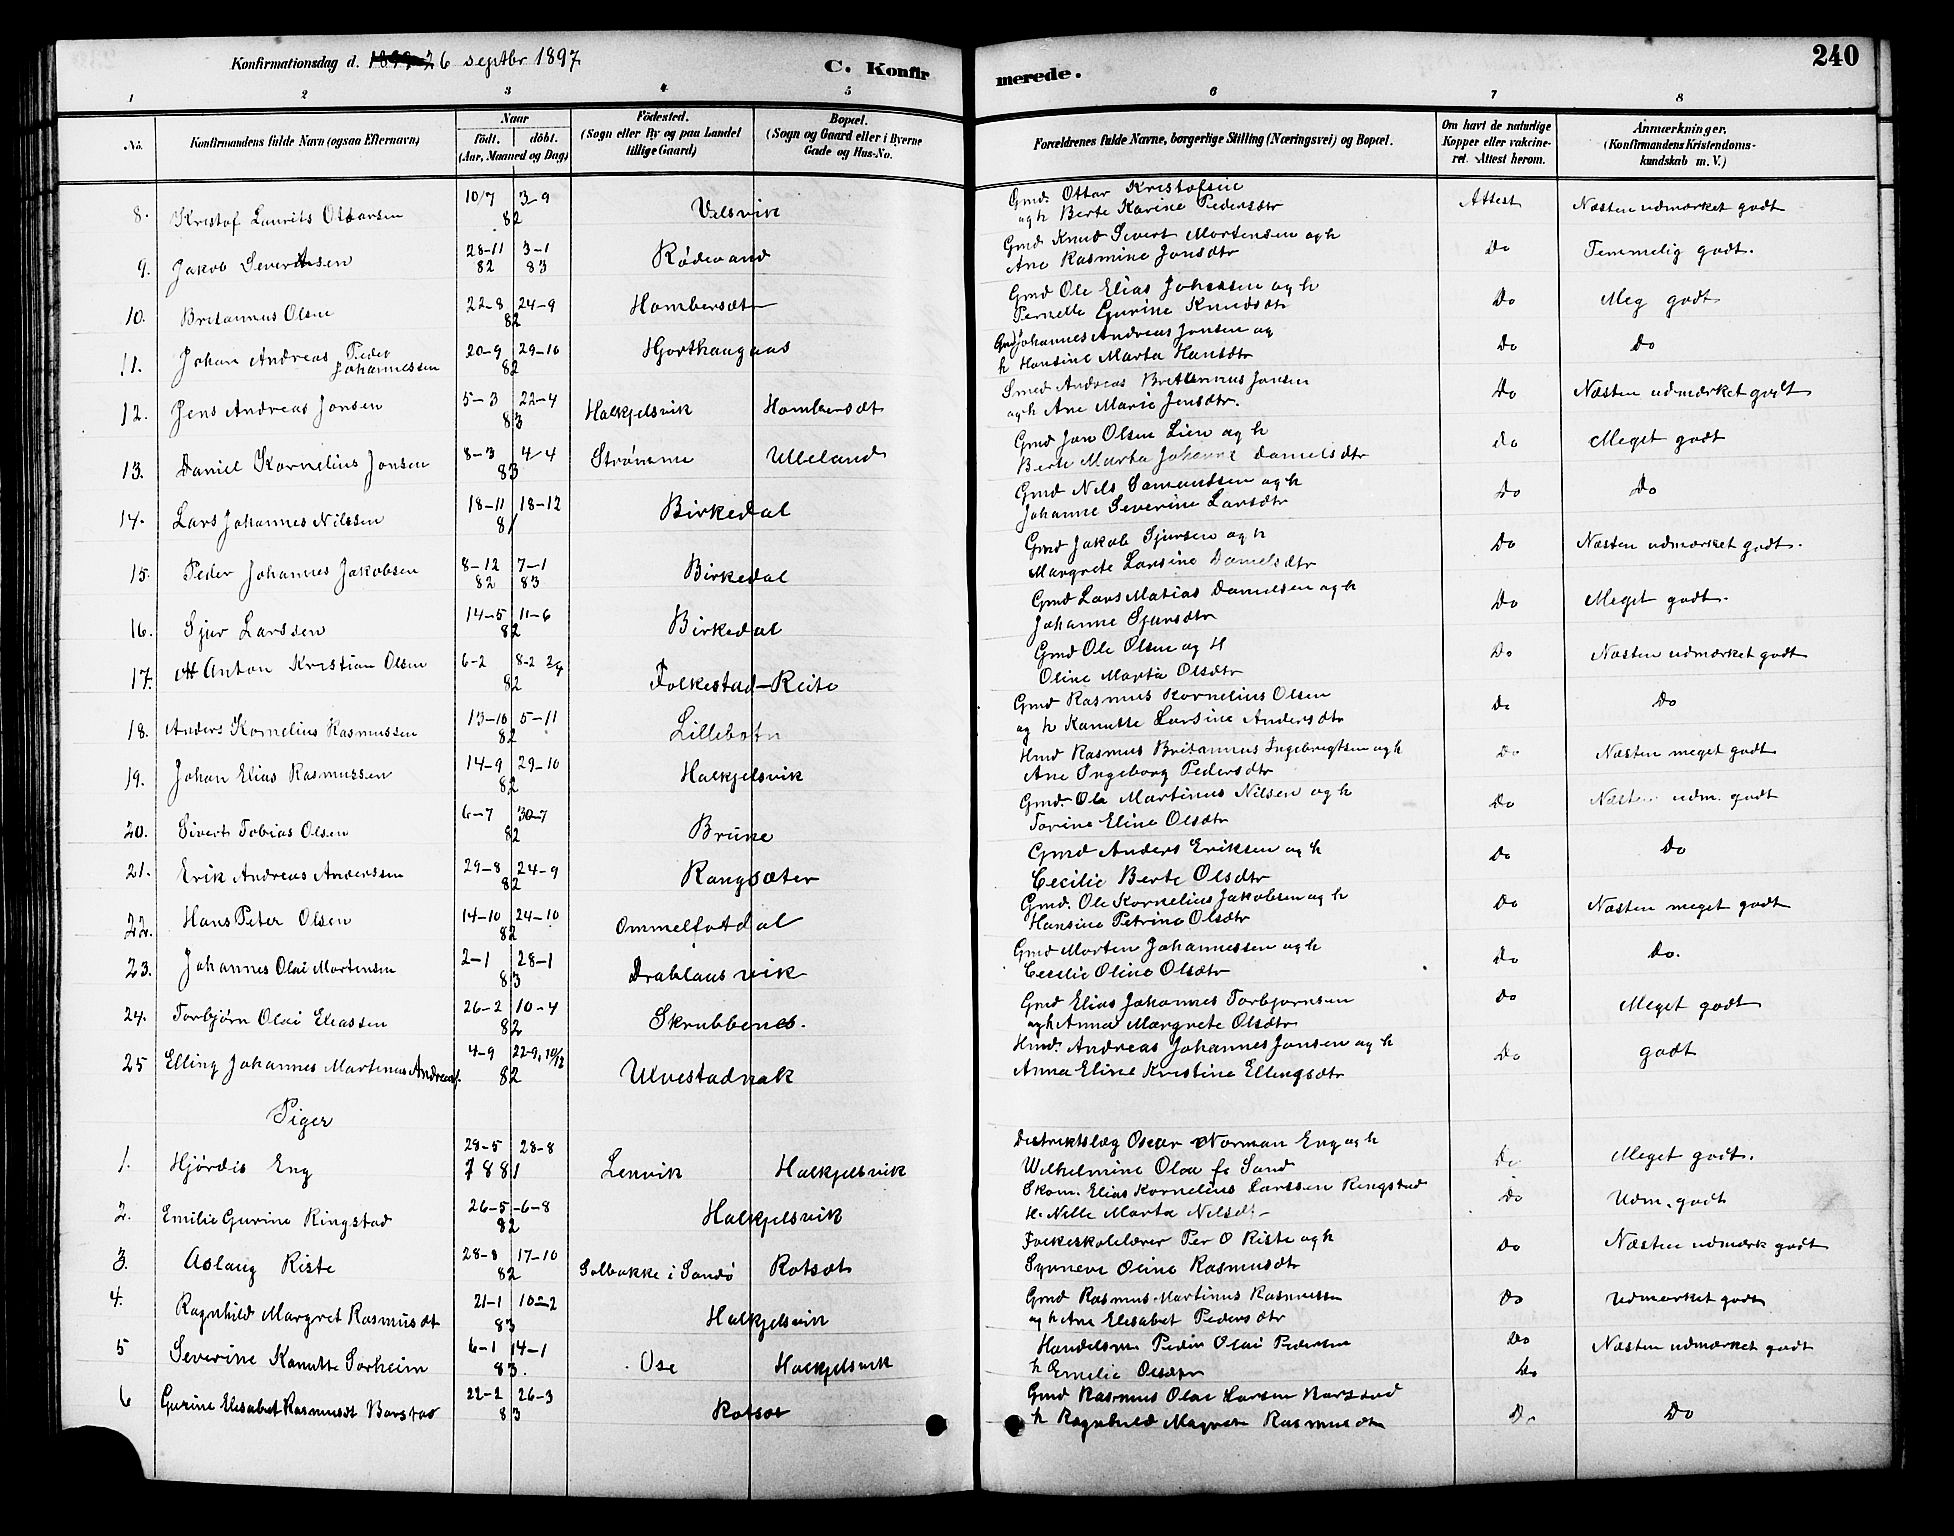 Konfirmationsdag d. 26 septbr 1897
C. Konfirmerede.
240
1 2 3 4 5 6 7 8
No.
Konfirmandens fulde Navn (ogsaa Efternavn)
Naar
födt. döbt.
(Aar, Maaned og Dag)
Födested.
(Sogn eller By og paa Landet tillige Gaard)
Bopæl.
(Sogn og Gaard eller i Byerne Gade og Hus-No.
Forældrenes fulde Navne, borgerlige Stilling (Næringsvei) og Bopæl.
Om havt de naturlige Kopper eller vakcineret. Attest herom.
Anmærkninger.
(Konfirmandens Kristendomskundskab m. V.)
8. Kristof Laurits Ottarsen 10/7 3-9 82 Velsvik Gmd. Ottar Kristofsen og h Berte Karine Pedersdtr Attest Næsten udmærket godt
9. Jakob Severinsen 28-11 82 3-1 83 Rødevand Gmd Knud Sivert Mortensen og h Ane Rasmine Jonsdtr Do Temmelig godt.
10. Britannus Olsen 22-8 24-9 82 Hambersæt Gmd Ole Elias Johnsen og h Pernelle Gurine Knudsdtr Do Meg godt
11. Johan Andreas Peder Johannessen 20-9 29-10 82 Hjorthaugaas Gmd Johannes Andreas Jonsen og h Hansine Marta Hansdtr Do Do
12. Jens Andreas Jonsen 5-3 22-4 83 Halkjelsvik Hambersæt Smed Andreas Britannus Jonsen og h Ane Marie Jensdtr. Do Næsten udmærket godt
13. Daniel Kornelius Jonsen 8-3 4-4 83 Strømme Ulleland Gmd Jon Olsen Lien og h Berte Marta Johanne Danielsdtr Do Meget godt
14. Lars Johannes Nilssen 18-11 18-12 81 Birkedal Gmd Nils Samundsen og h Johanne Severine Larsdtr Do Do
15. Peder Johannes Jakobsen 8-12 82 7-1 83 Birkedal Gmd Jakob Sjursen og h Margrete Larsine Danielsdtr Do Næsten udmærket godt.
16. Sjur Larssen 14-5 11-6 82 Birkedal Gmd Lars Matias Danielsen og h Johanne Sjursdtr Do Meget godt.
17. Anton Kristian Olsen 6-2 8-2 82 Folkestad-Reite Gmd Ole Olsen og H Oline Marta Olsdtr Do Næsten udmærket godt
18. Anders Kornelius Rasmussen 13-10 5-11 82 Lillebotn Gmd Rasmus Kornelius Olsen og h Kanutte Larsine Andersdtr Do Do
19. Johan Elias Rasmussen 14-9 29-10 82 Halkjelsvik Hmd Rasmus Britannus Ingebrigtsen og h Ane Ingeborg Pedersdtr Do Næsten meget godt
20. Sivert Tobias Olsen 6-7 30-7 82 Brune Gmd. Ole Martinus Nilsen og h Torine Eline Olsdtr Do Næsten udm. godt
21. Erik Andreas Anderssen 29-8 24-9 82 Rangsæter Gmd Anders Eriksen og h Cecilie Berte Olsdtr Do Do
22. Hans Peter Olsen 14-10 24-10 82 Ommelfotdal Gmd. Ole Kornelius Jakobsen og h Hansine Petrine Olsdtr Do Næsten meget godt
23. Johannes Olai Mortensen 2-1 28-1 83 Drablausvik Gmd Morten Johannessen og h Cecilie Oline Olsdtr Do Do.
24. Torbjörn Olai Eliassen 26-2 10-4 82 Skrubbenes. Gmd Elias Johannes Torbjornsen og h Anna Margrete Olsdtr Do Meget godt
25 Elling Johannes Martinus Andreass. 4-9 22-9, 10/12 82 Ulvestadnak Hmd. Andreas Johannes Jonsen og h Anna Eline Kristine Ellingsdtr Do godt
Piger
1. Hjördis Eng 28-5 28-8 1881 Lenvik Halkjelsvik Distriktslæg Oscar Norman Eng og h Wilhelmine Olea f. Sand Do Meget godt.
2. Emilie Gurine Ringstad 26-5 -6-8 82 Halkjelsvik Skom. Elias Kornelius Larssen Ringstad H. Nille Marta Nilsdtr Do Udm. godt
3. Aslaug Riste 28-8 17-10 82 Solbakke i Sandö Rotsæt Folkeskolelærer Per O Riste og h Synneve Oline Rasmusdtr Do Næsten udmærk godt
4. Ragnhild Margret Rasmusdt 21-1 10-2 83 Halkjelsvik Gmd Rasmus Martinus Rasmussen og h Ane Elisabet Pedersdtr Do Udmærket godt
5 Severine Kanutte Sorheim 6-1 14-1 83. Ose Halkjelsvik Handelsm Peder Olai Pedersen h Emilie Olsdtr Do Do Næsten udmærket godt
6 Gurine Elisabet Rasmusdt Barstad 22-2 26-3 83 Rotsæt Gmd Rasmus Olai Larsen Barstad h Ragnhild Magrete Rasmusdtr Do Do